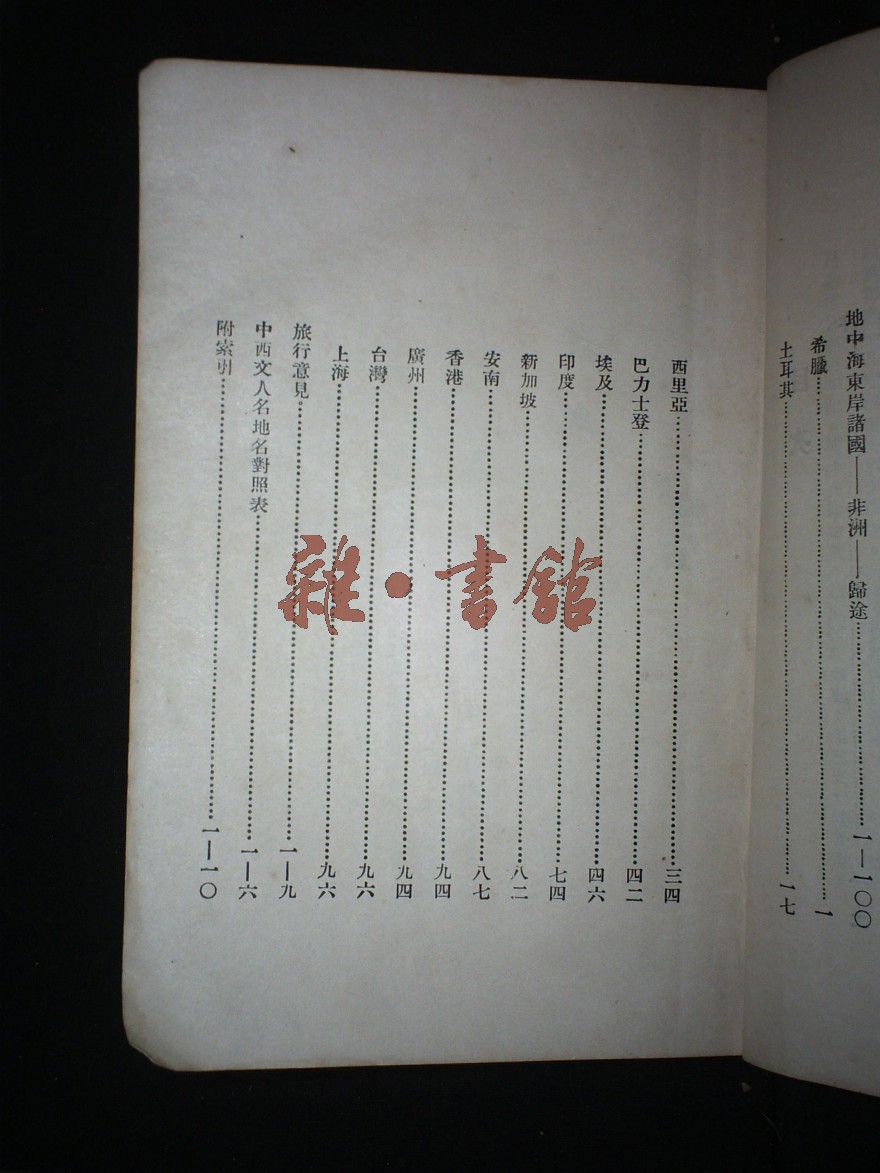 地中海東岸諸國——非洲——歸途……一—一〇〇
希臘……一
土耳其……一七
西里亞……三四
巴力士登……四二
埃及……四六
印度……七四
新加坡……八二
安南……八七
香港……九四
廣州……九四
台灣……九六
上海……九六
旅行意見……一—九
中西文人名地名對照表……一—六
附索引……一—一〇
雜·書館